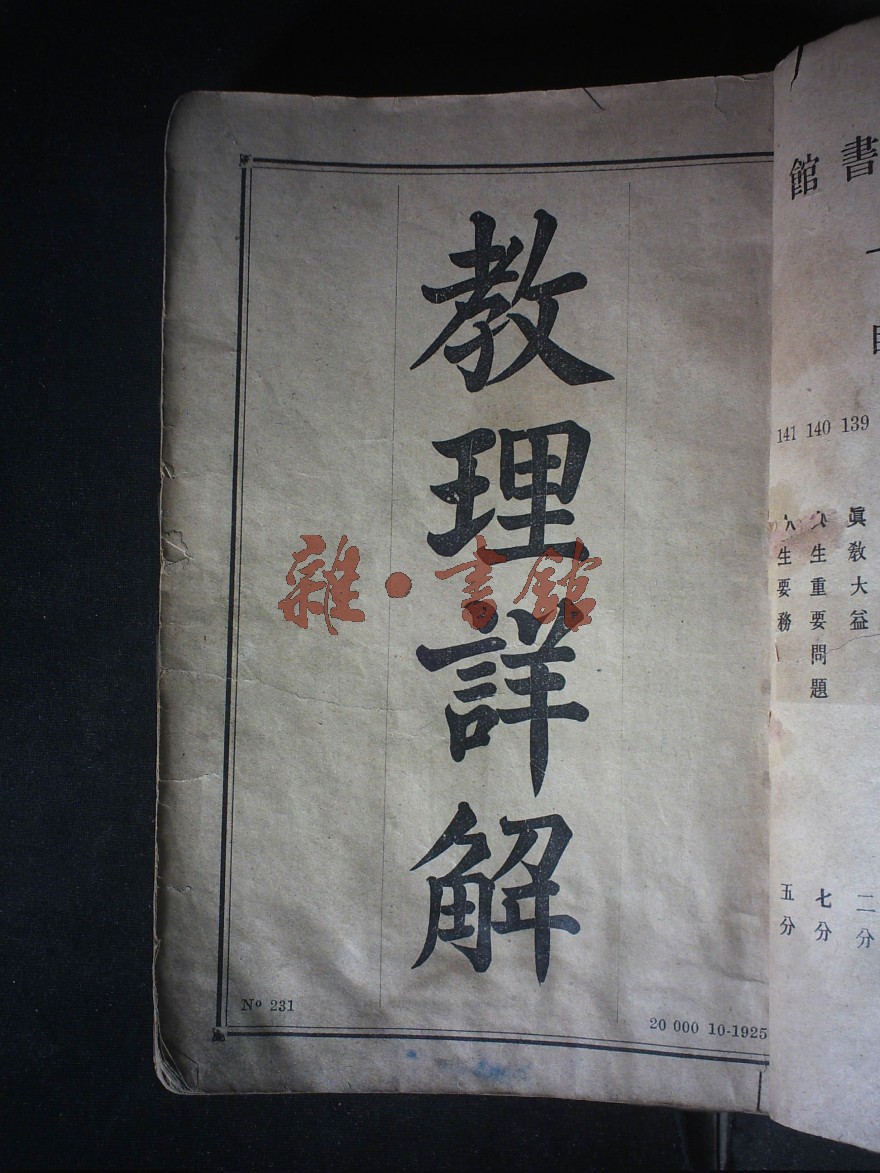 教理詳解
雜·書館
Nº 231
20 000 10-1925
書
館
139
眞教大益
二分
140
人生重要問題
七分
141
人生要務
五分